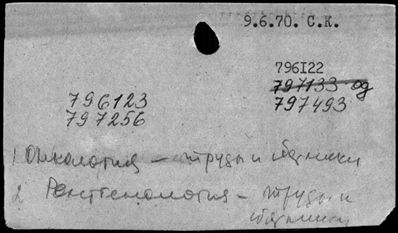 9.6.70. С.К.
796I22
797133 од
797493
796123
797256
1 Онкология – труды и сборники
2 Рентгенология – труды и
сборники